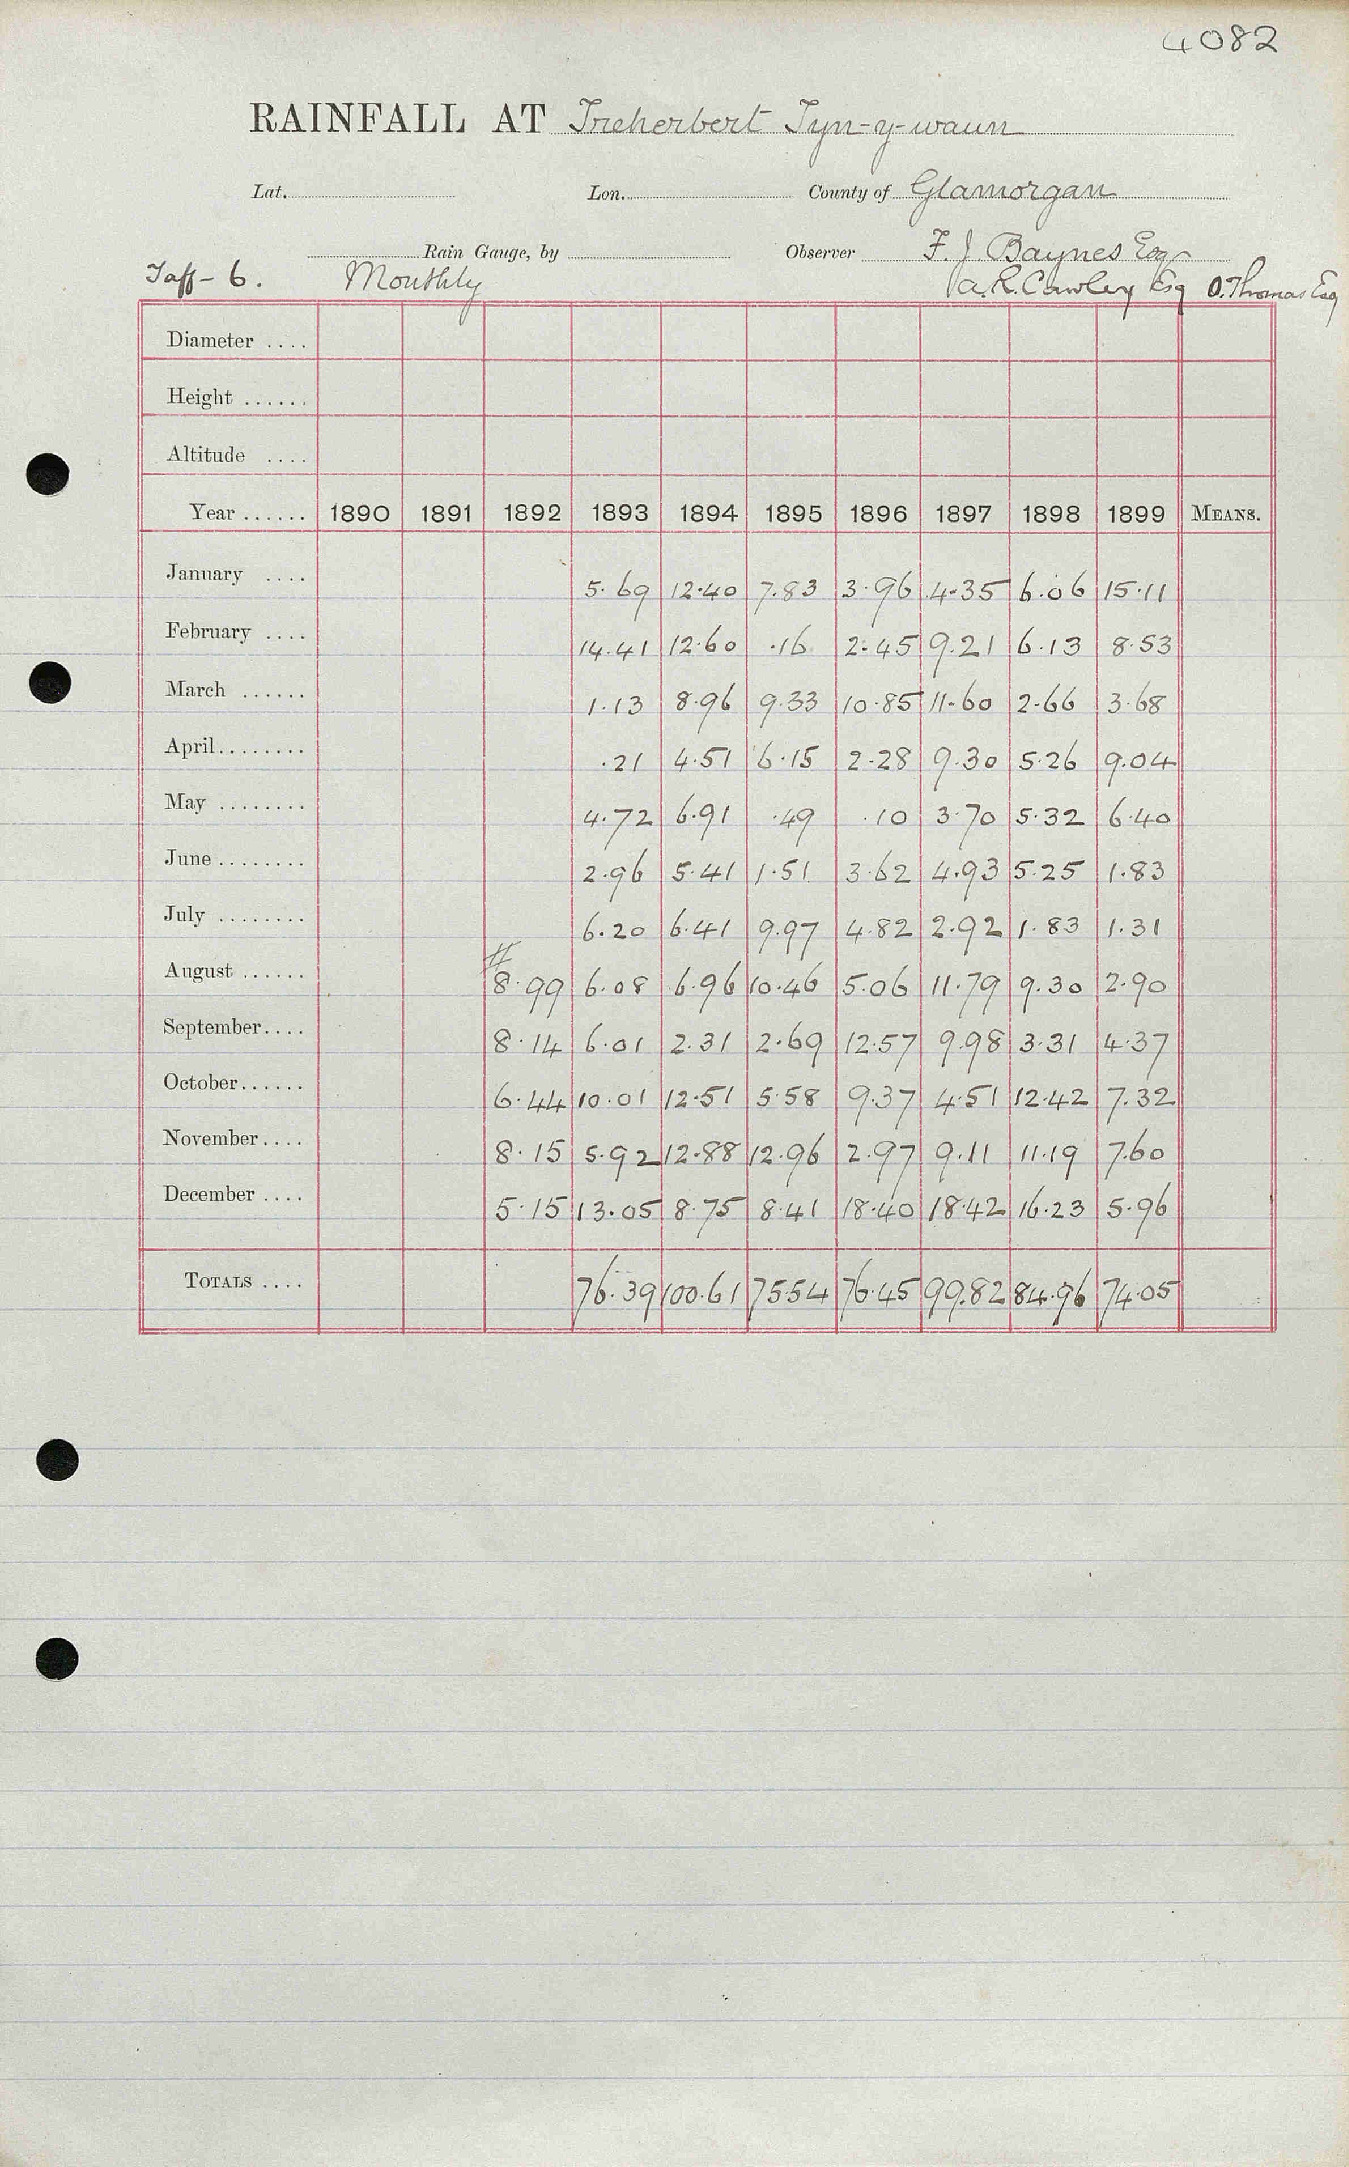 4082
RAINFALL AT Treherbert Tyn-y-waun
Lat. Lon. County of Glamorgan
Rain Gauge, by Observer F. J Baynes Esq
Taff - 6. Monthly A. R. Cawley Esq O. Thomas Esq
Diameter ....
Height ......
Altitude ....
Year ...... 1890 1891 1892 1893 1894 1895 1896 1897 1898 1899 MEANS.
January .... 5.69 12.40 7.83 3.96 4.35 6.06 15.11
February .... 14.41 12.60 .16 2.45 9.21 6.13 8.53
March ...... 1.13 8.96 9.33 10.85 11.60 2.66 3.68
April........ .21 4.51 6.15 2.28 9.30 5.26 9.04
May ........ 4.72 6.91 .49 .10 3.70 5.32 6.40
June ........ 2.96 5.41 1.51 3.62 4.93 5.25 1.83
July ........ 6.20 6.41 9.97 4.82 2.92 1.83 1.31
August ...... # 8.99 6.08 6.96 10.46 5.06 11.79 9.30 2.90
September.... 8.14 6.01 2.31 2.69 12.57 9.98 3.31 4.37
October...... 6.44 10.01 12.51 5.58 9.37 4.51 12.42 7.32
November.... 8.15 5.92 12.88 12.96 2.97 9.11 11.19 7.60
December .... 5.15 13.05 8.75 8.41 18.40 18.42 16.23 5.96
TOTALS .... 76.39 100.61 75.54 76.45 99.82 84.96 74.05